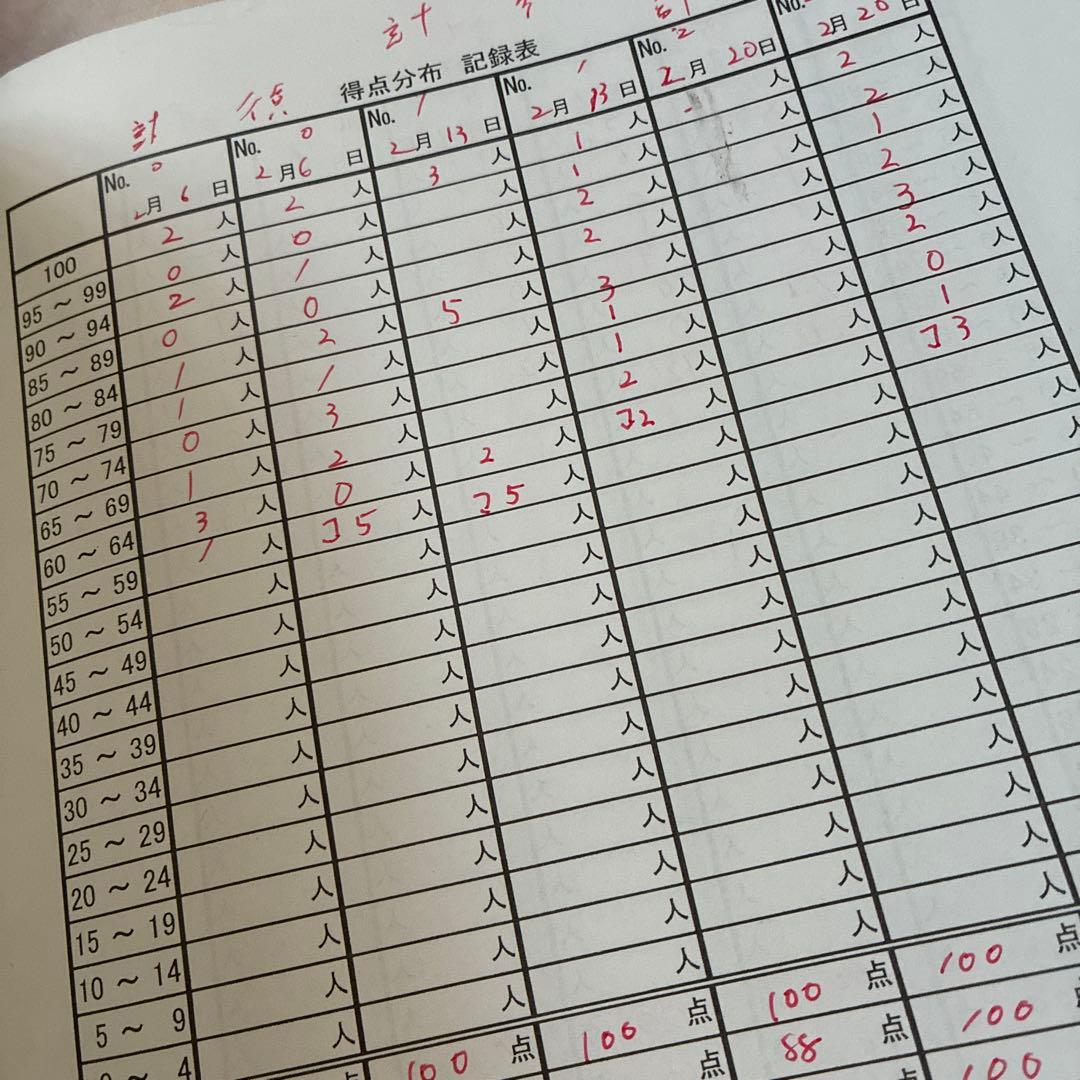 計
得点分布 記録表
計
No. 0
2月 6日
No. 0
2月6日
No. 1
2月 13日
No. 1
2月 13日
No. 2
2月 20日
No.
2月 20日
100
2 人 2 人 3 人 1 人 人 2 人
95 ～ 99
0 人 0 人 人 1 人 人 2 人
90 ～ 94
2 人 1 人 人 2 人 人 1 人
85 ～ 89
0 人 0 人 5 人 2 人 人 2 人
80 ～ 84
1 人 2 人 人 3 人 人 3 人
75 ～ 79
1 人 1 人 人 1 人 人 2 人
70 ～ 74
0 人 3 人 人 1 人 人 0 人
65 ～ 69
1 人 2 人 2 人 2 人 人 1 人
60 ～ 64
3 人 0 人 5 人 2 人 人 3 人
55 ～ 59
1 人 5 人 人 人 人
50 ～ 54
人 人 人 人 人
45 ～ 49
人 人 人 人 人
40 ～ 44
人 人 人 人 人
35 ～ 39
人 人 人 人 人
30 ～ 34
人 人 人 人 人
25 ～ 29
人 人 人 人 人
20 ～ 24
人 人 人 人 人
15 ～ 19
人 人 人 人
10 ～ 14
人 人 人
5 ～ 9
人 人
4
点 100 点 100 点 100 点 100 点
88 点 100
100